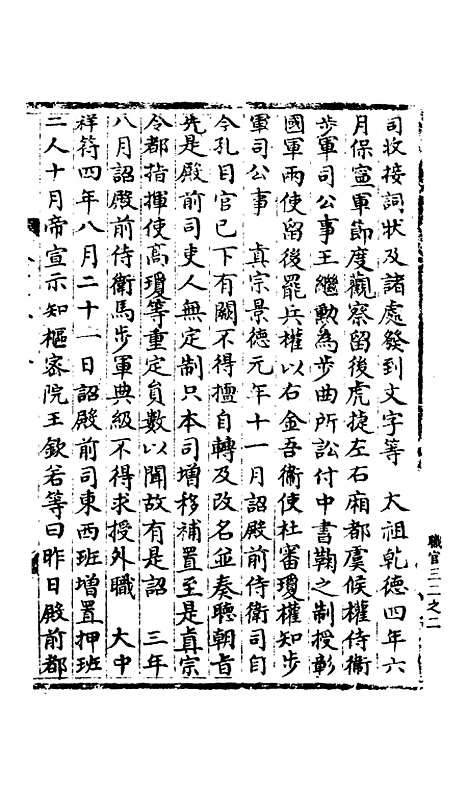 司收接詞狀及諸處發到文字等　太祖乾德四年六
月保寧軍節度觀察留後虎捷左右廂都虞候權侍衛
步軍司公事王繼勳為步曲所訟付中書鞫之制授彰
國軍兩使留後罷兵權以右金吾衛使杜審瓊權知步
軍司公事　真宗景德元年十一月詔殿前侍衛司自
今孔目官已下有闕不得擅自轉及改名並奏聽朝旨
先是殿前司吏人無定制只本司增移補置至是真宗
令都指揮使高瓊等重定員數以聞故有是詔　三年
八月詔殿前侍衛馬步軍典級不得求授外職　大中
祥符四年八月二十一日詔殿前司東西班增置押班
二人十月帝宣示知樞密院王欽若等曰昨日殿前都
職官三二之二